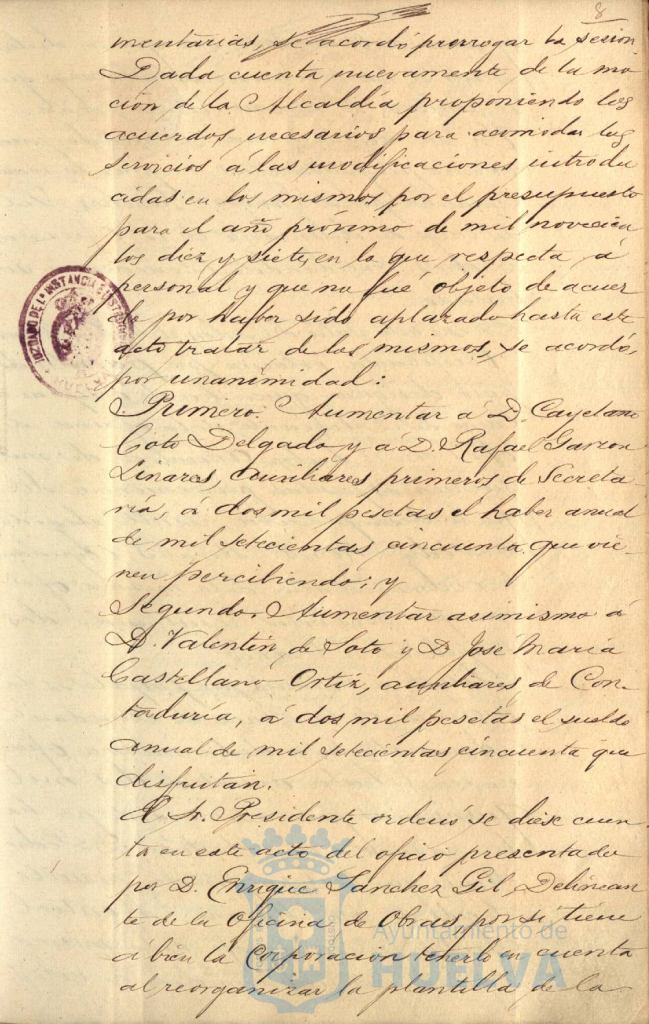 8
mentarias, se acordó prorrogar la sesion.
Dada cuenta nuevamente de la mo
ción de la Alcaldía proponiendo los
acuerdos necesarios para acomodar los
servicios á las modificaciones introdu
cidas en los mismos por el presupuesto
para el año próximo de mil novecien
tos diez y siete, en lo que respecta á
personal y que no fué objeto de acuer
do por haber sido aplazado hasta este
acto tratar de los mismos, se acordó,
por unanimidad:
Primero. Aumentar á D. Cayetano
Coto Delgado y á D. Rafael Garzon
Linares, auxiliares primeros de Secreta-
ría, á dos mil pesetas el haber anual
de mil setecientas cincuenta que vie-
nen percibiendo; y
Segundo. Aumentar asimismo á
D. Valentín de Soto y D. José María
Castellano Ortiz, auxiliares de Con-
taduría, á dos mil pesetas el sueldo
anual de mil setecientas cincuenta que
disfrutan.
El Sr. Presidente ordenó se diese cuen-
ta en este acto del oficio presentado
por D. Enrique Sánchez Gil, Delinean
te de la Oficina de Obras, por si tiene
á bien la Corporación tenerlo en cuenta
al reorganizar la plantilla de la
JUZGADO DE 1ª INSTANCIA
Ayuntamiento de
HUELVA